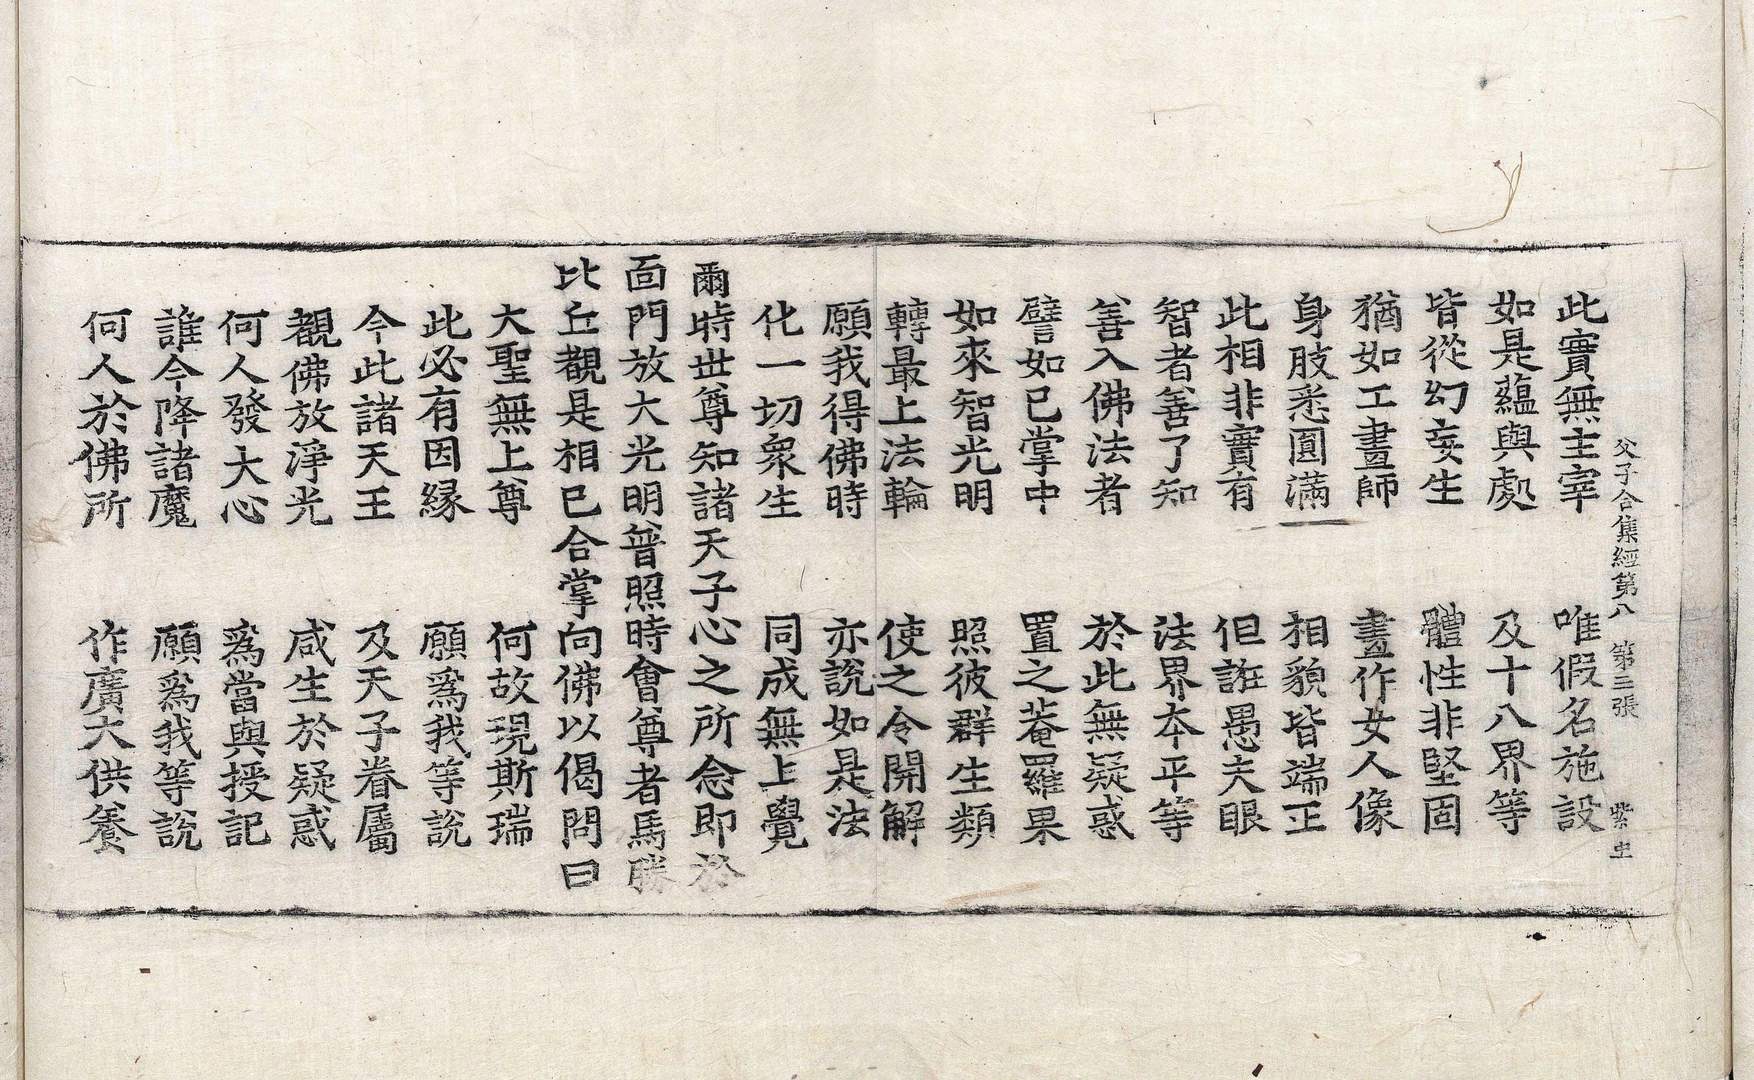 父子合集經第八　第三張　紫虫
此實無主宰　唯假名施設
如是蘊與處　及十八界等
皆從幻妄生　體性非堅固
猶如工畫師　畫作女人像
身肢悉圓滿　相貌皆端正
此相非實有　但誑愚夫眼
智者善了知　法界本平等
善入佛法者　於此無疑惑
譬如已掌中　置之菴羅果
如來智光明　照彼群生類
轉最上法輪　使之令開解
願我得佛時　亦說如是法
化一切衆生　同成無上覺
爾時世尊知諸天子心之所念即於
面門放大光明普照時會尊者馬勝
比丘覩是相已合掌向佛以偈問曰
大聖無上尊　何故現斯瑞
此必有因縁　願爲我等說
今此諸天王　及天子眷屬
觀佛放淨光　咸生於疑惑
何人發大心　爲當與授記
誰今降諸魔　願爲我等說
何人於佛所　作廣大供養